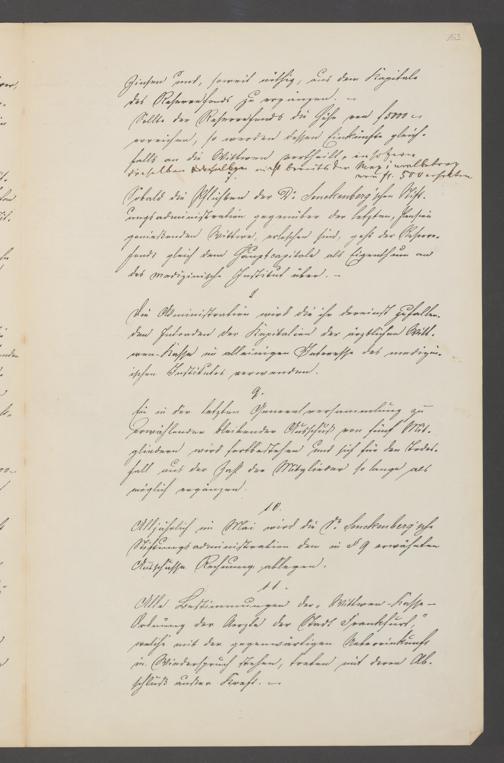 Zinsen und, soweit nöthig, aus dem Kapitale
des Reservefonds zu ergänzen. —
Sollte der Reservefonds die Höhe von
erreichen, so werden dessen Einkünfte gleich-
falls an die Wittwen vertheilt, insofern
dieselben nicht bereits den Maximalbetrag
von fl. 500
Sobald die Pflichten der Dr. Senckenberg'schen Stift-
ungsadministration gegenüber der letzten, Pension
genießenden Wittwe, erloschen sind, geht der Reserve-
fonds gleich dem Hauptcapitale als Eigenthum an
das medizinische Institut über. —
8
Die Administration wird die ihr dereinst zufallen-
den Intraden der Kapitalien der ärztlichen Witt-
wen-Kasse im alleinigen Interesse des medizin-
ischen Institutes verwenden.
9.
Ein in der letzten Generalversammlung zu
erwählender bleibender Ausschuß von fünf Mit-
gliedern wird fortbestehen und sich für den Todes-
fall aus der Zahl der Mitglieder so lange als
möglich ergänzen.
10.
Alljährlich im Mai wird die Dr. Senckenberg'sche
Stiftungsadministration dem in § 9 erwähnten
Ausschusse Rechnung ablegen.
11.
Alle Bestimmungen der „Wittwen-Kasse-
Ordnung der Aerzte der Stadt Frankfurt,"
welche mit der gegenwärtigen Uebereinkunft
in Widerspruch stehen, treten mit deren Ab-
schluß außer Kraft. —